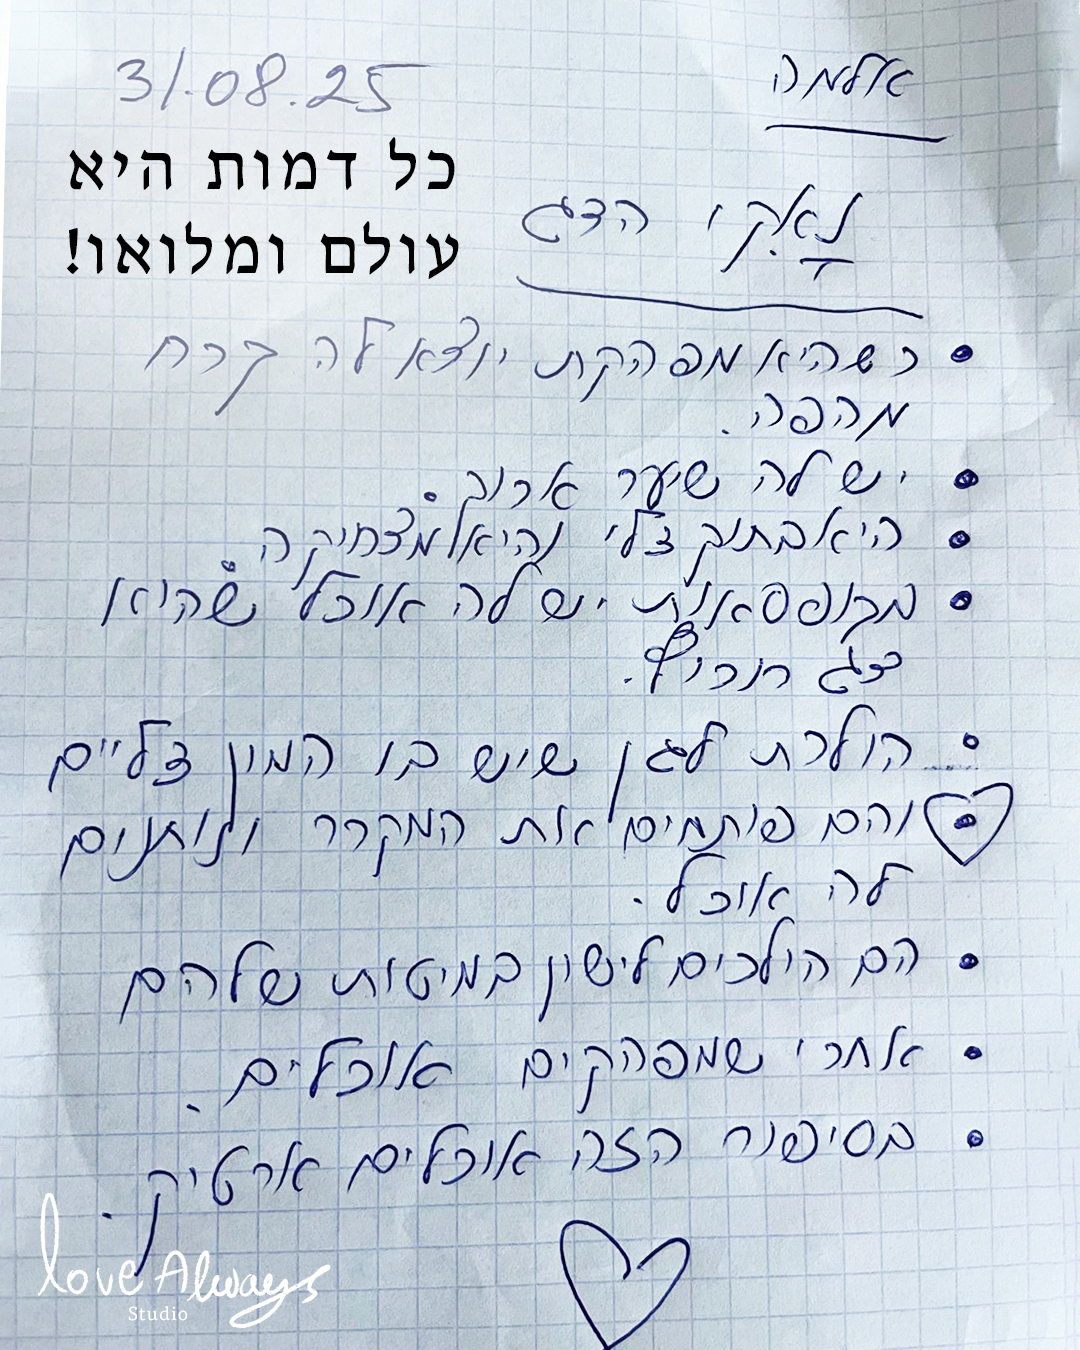 אלמה
31.08.25
כל דמות היא
עולם ומלואו!
נָאקִי הדג
כשהיא מפהקת יוצא לה קרח
מהפה.
יש לה שיער ארוך.
היא בתוך צלי והיא מצחיקה.
בקופסאות יש לה אוכל שהוא
דג חריף.
הולכת לגן שיש בו המון צליים
והם פותחים את המקרר ונותנים
לה אוכל.
הם הולכים לישון במיטות שלהם
אחרי שמפהקים אוכלים.
בסיפור הזה אוכלים ארטיק.
love Always
Studio